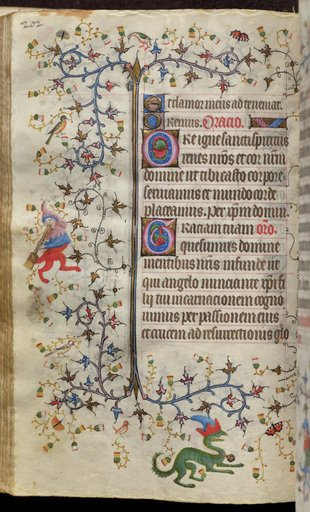 202
Et clamor meus ad te veniat.
Oremus. Oracio.
Ure igne sancti spiritus
renes nr̄os et cor nr̄m
domine ut tibi casto corpore
serviamus et mundo corde
placeamus. per xp̄m domin.
Graciam tuam oro.
quesumus domine
mentibus nr̄is infunde ut
qui angelo nunciante xp̄i fi
lij tui incarnacionem cogno
vimus per passionem eius
et crucem ad resurectionis glo